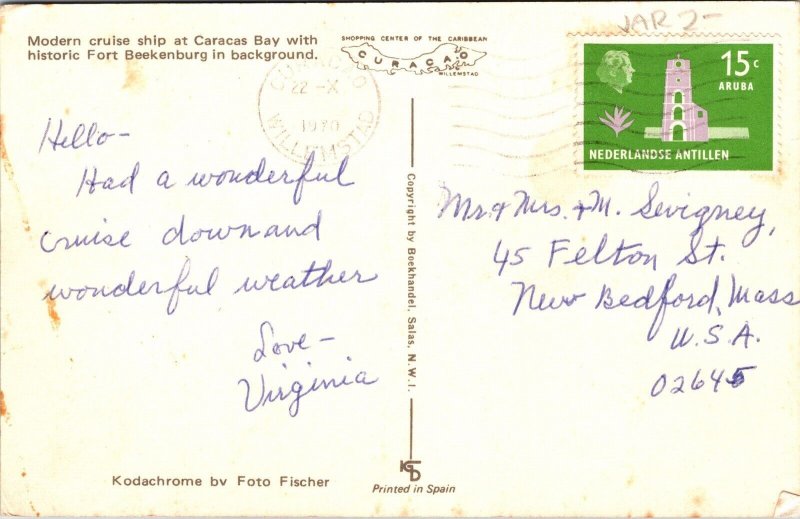 Modern cruise ship at Caracas Bay with
historic Fort Beekenburg in background.
SHOPPING CENTER OF THE CARIBBEAN
CURACAO
WILLEMSTAD
CURACAO
22 -X
1970
WILLEMSTAD
15c
ARUBA
NEDERLANDSE ANTILLEN
Hello-
Had a wonderful
cruise down and
wonderful weather
Love-
Virginia
Copyright by Boekhandel, Salas, N.W.I.
Mr. & Mrs. M. Sevigney,
45 Felton St.
New Bedford, Mass
U.S.A.
02645
Kodachrome bv Foto Fischer
Printed in Spain